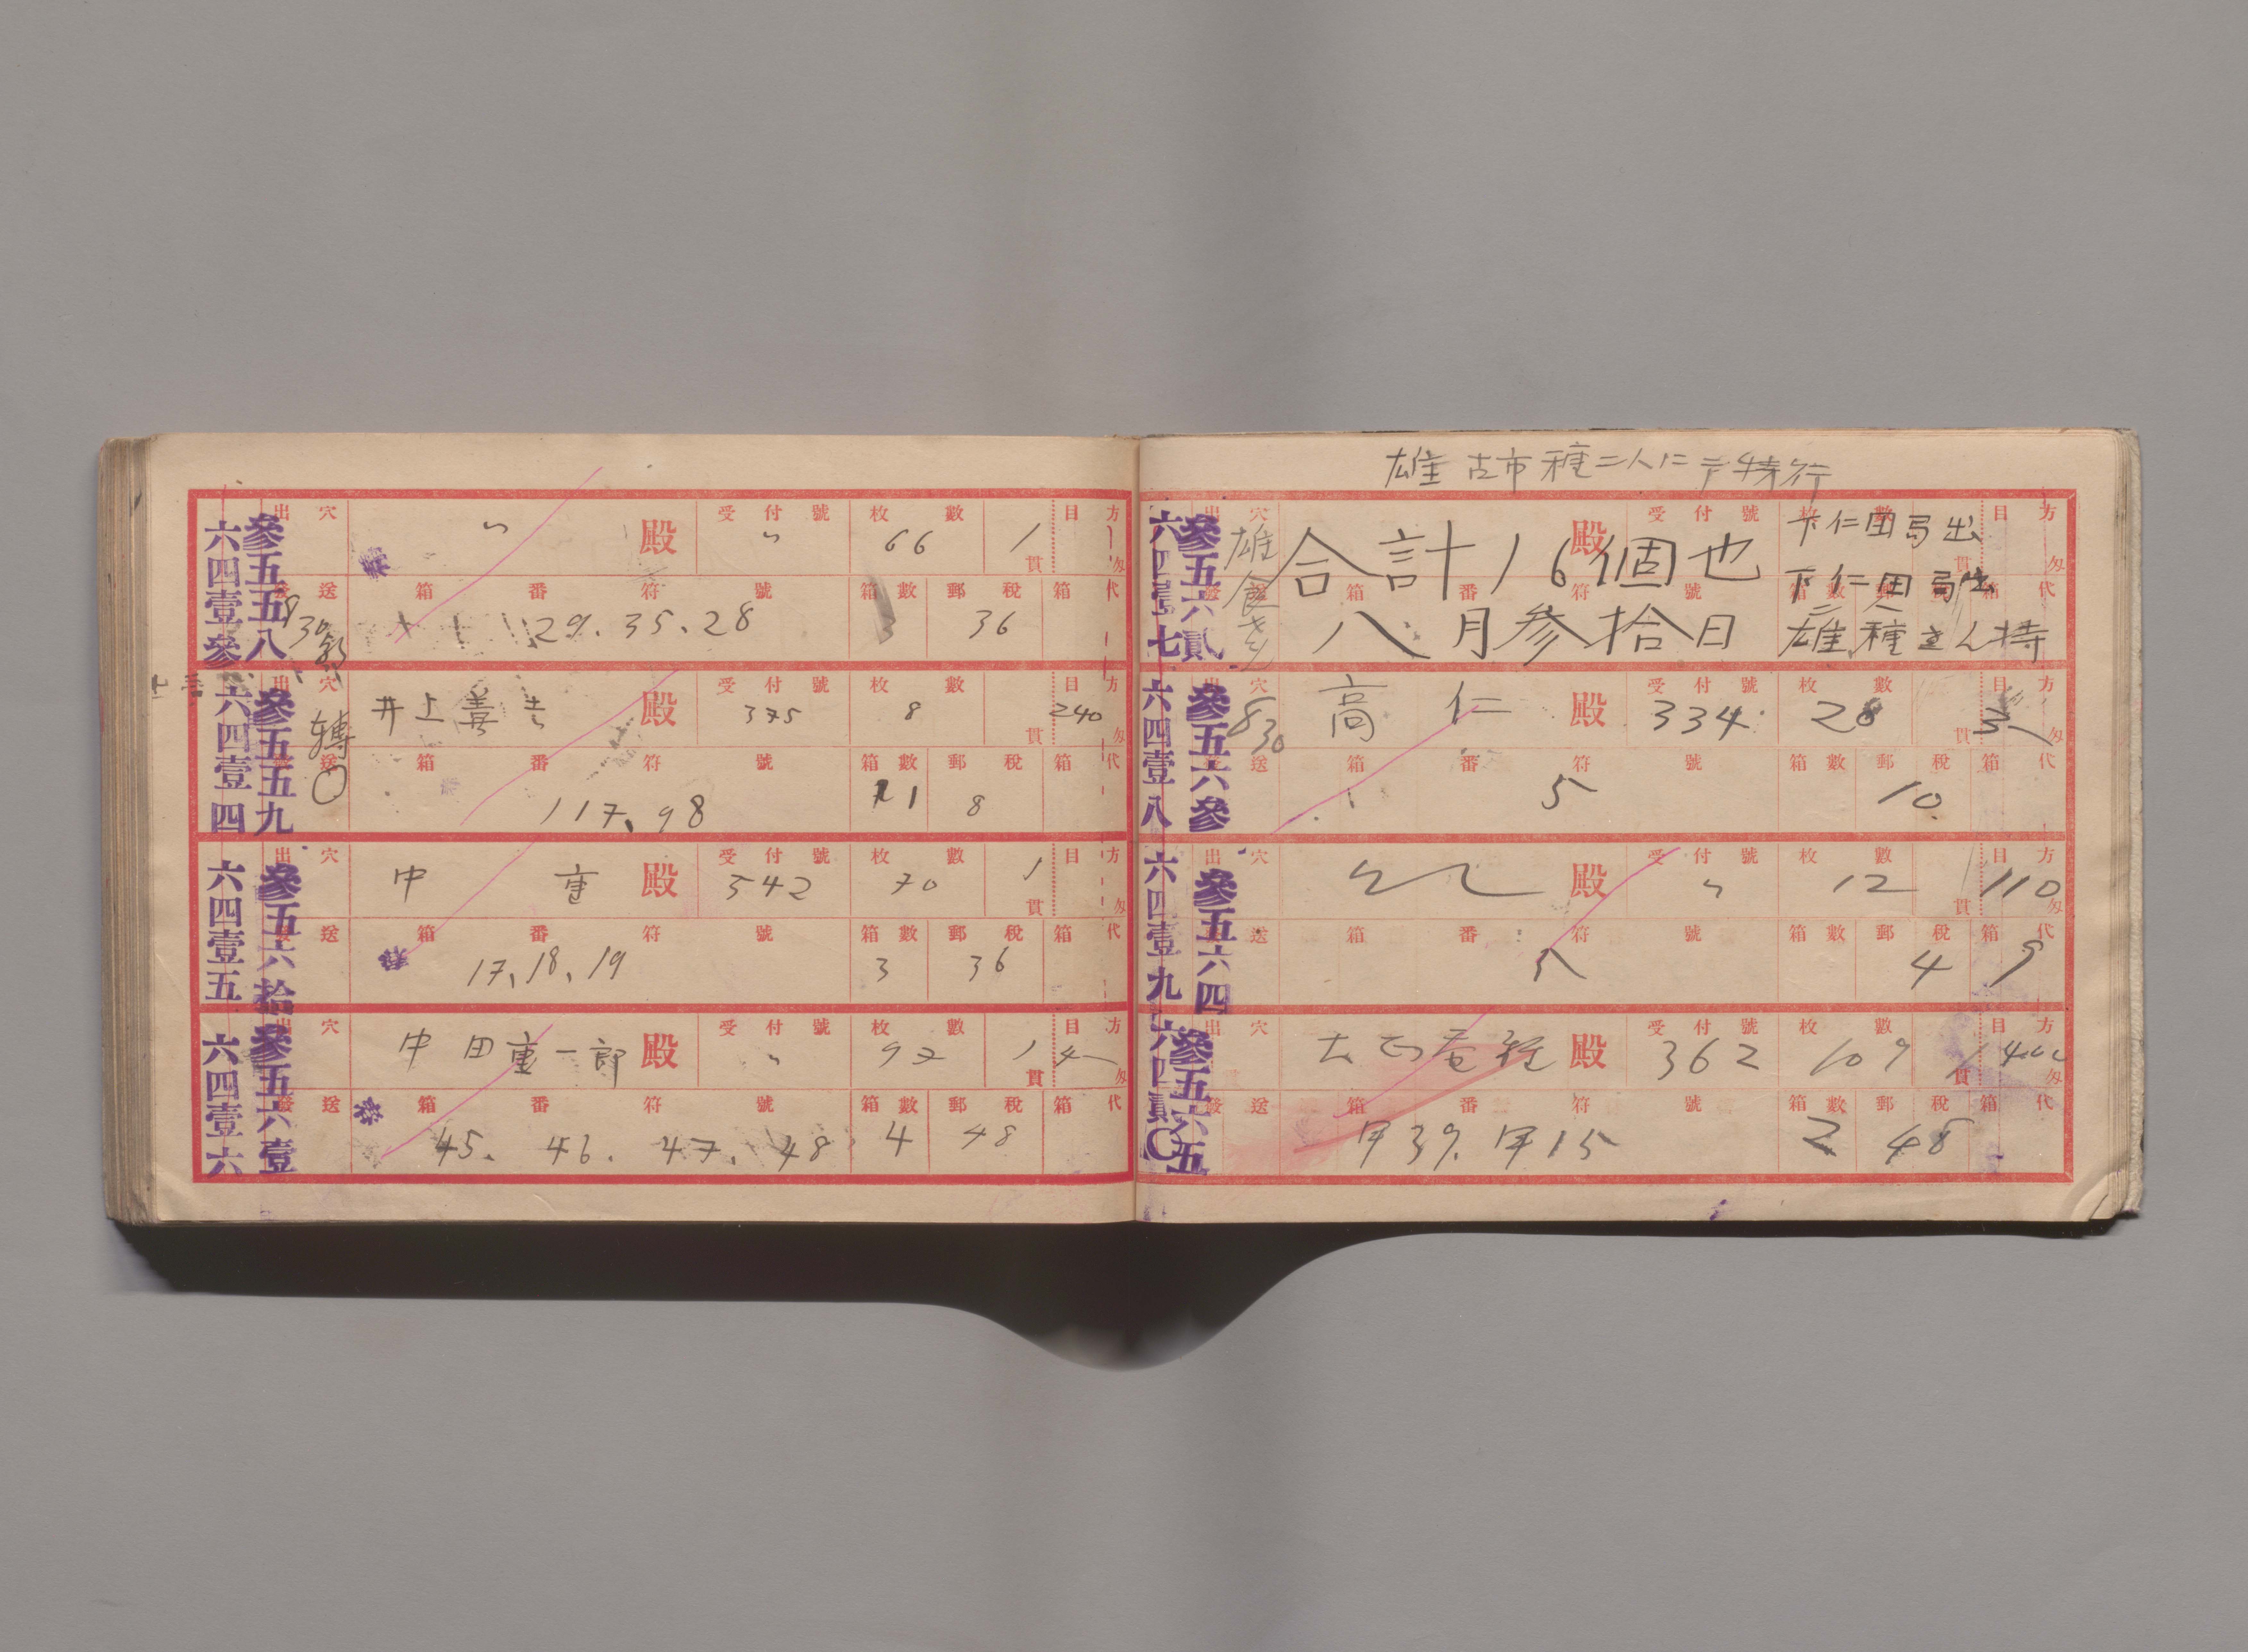 出穴 〃 殿 受付號 〃 枚數 66 1 貫 目方 匁
發送 8 30 箱番符號 29. 35. 28 箱數 3 郵稅 36 箱代
參五五八
六四壹參
出穴 井上善吉 殿 受付號 375 枚數 8 貫 目方 240 匁
發送 箱番符號 117、98 箱數 1 郵稅 8 箱代
參五五九
六四壹四
出穴 中 重 殿 受付號 542 枚數 70 1 貫 目方 匁
發送 箱番符號 17、18、19 箱數 3 郵稅 36 箱代
參五六拾
六四壹五
出穴 中田重一郎 殿 受付號 〃 枚數 97 1 貫 目方 匁
發送 箱番符號 45. 46. 47. 48 箱數 4 郵稅 48 箱代
參五六壹
六四壹六
雄 古市 種二人ニテ特行
出穴 殿 受付號 枚數 貫 目方 匁
合計16個也
下仁田局出
下仁田局出
發送 箱番符號 箱數 郵稅 箱代
八月參拾日
雄、種さん持
參五六貳
六四壹七
出穴 8 30 高 仁 殿 受付號 334 枚數 28 貫 目方 3 匁
發送 箱番符號 5 箱數 郵稅 10 箱代
參五六參
六四壹八
出穴 殿 受付號 〃 枚數 12 貫 目方 110 匁
發送 箱番符號 5 箱數 郵稅 4 箱代 9
參五六四
六四壹九
出穴 殿 受付號 362 枚數 109 1 貫 目方 400 匁
發送 箱番符號 甲39. 甲15 箱數 2 郵稅 48 箱代
參五六五
六四貳〇